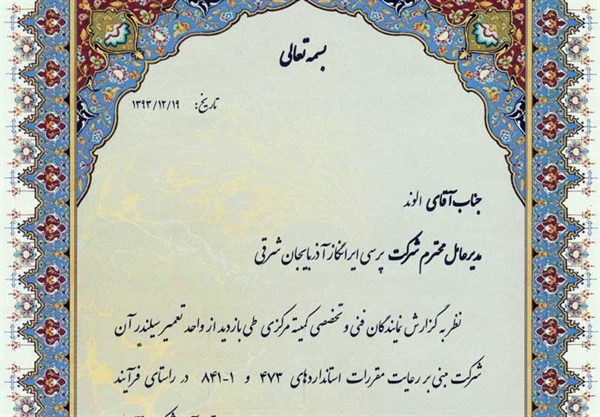 بسمه تعالی
تاریخ: ۱۳۹۳/۱۲/۱۹
جناب آقای الوند
مدیرعامل محترم شرکت پرسی ایرانگاز آذربایجان شرقی
نظر به گزارش نمایندگان فنی و تخصصی کمیته مرکزی طی بازدید از واحد تعمیر سیلندر آن
شرکت مبنی بر رعایت مقررات استانداردهای ۴۷۳ و ۱-۸۴۱ در راستای فرآیند